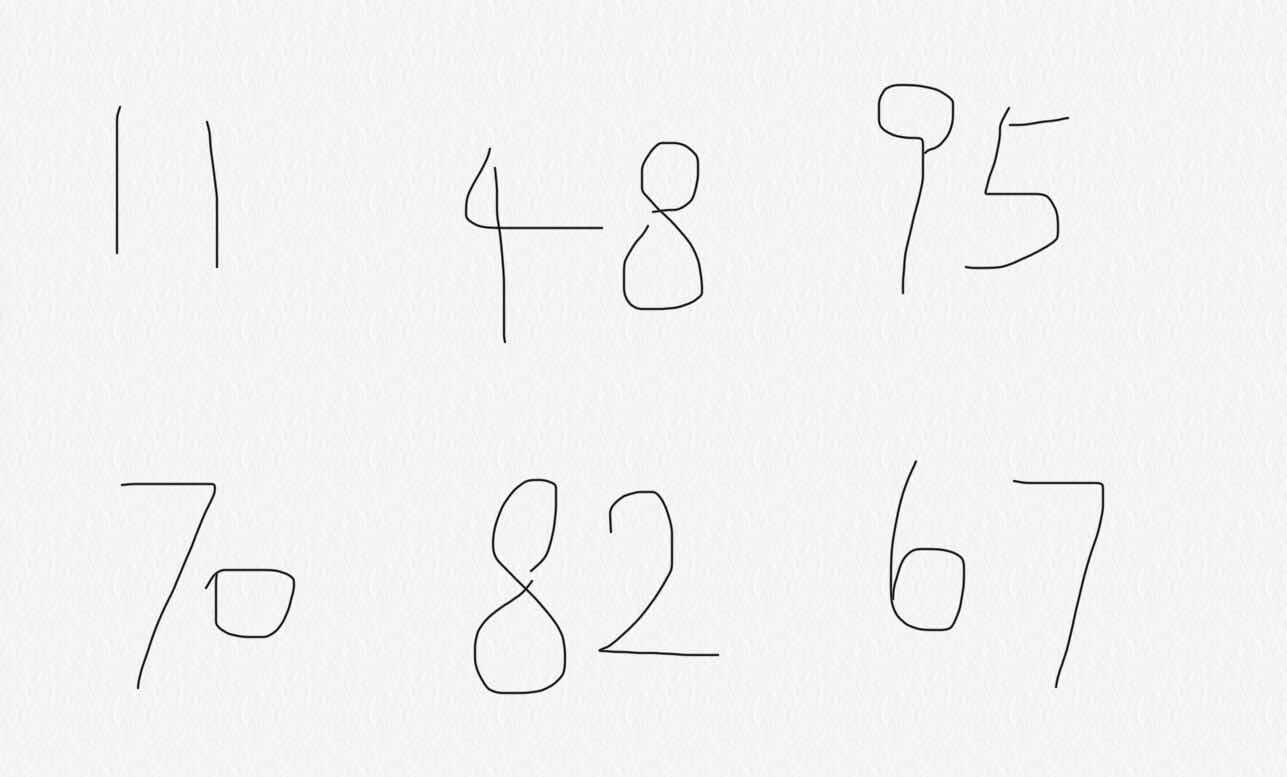 11 48 95
70 82 67